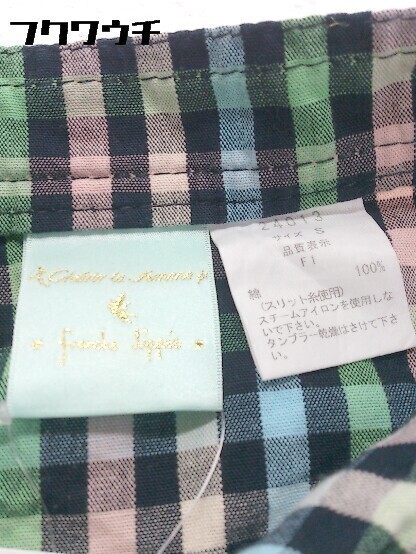 フクワウチ
franche lippée
24013
サイズ S
品質表示
F1
綿 100%
(スリット糸使用)
スチームアイロンを使用しな
いで下さい。
タンブラー乾燥はさけて下さ
い。